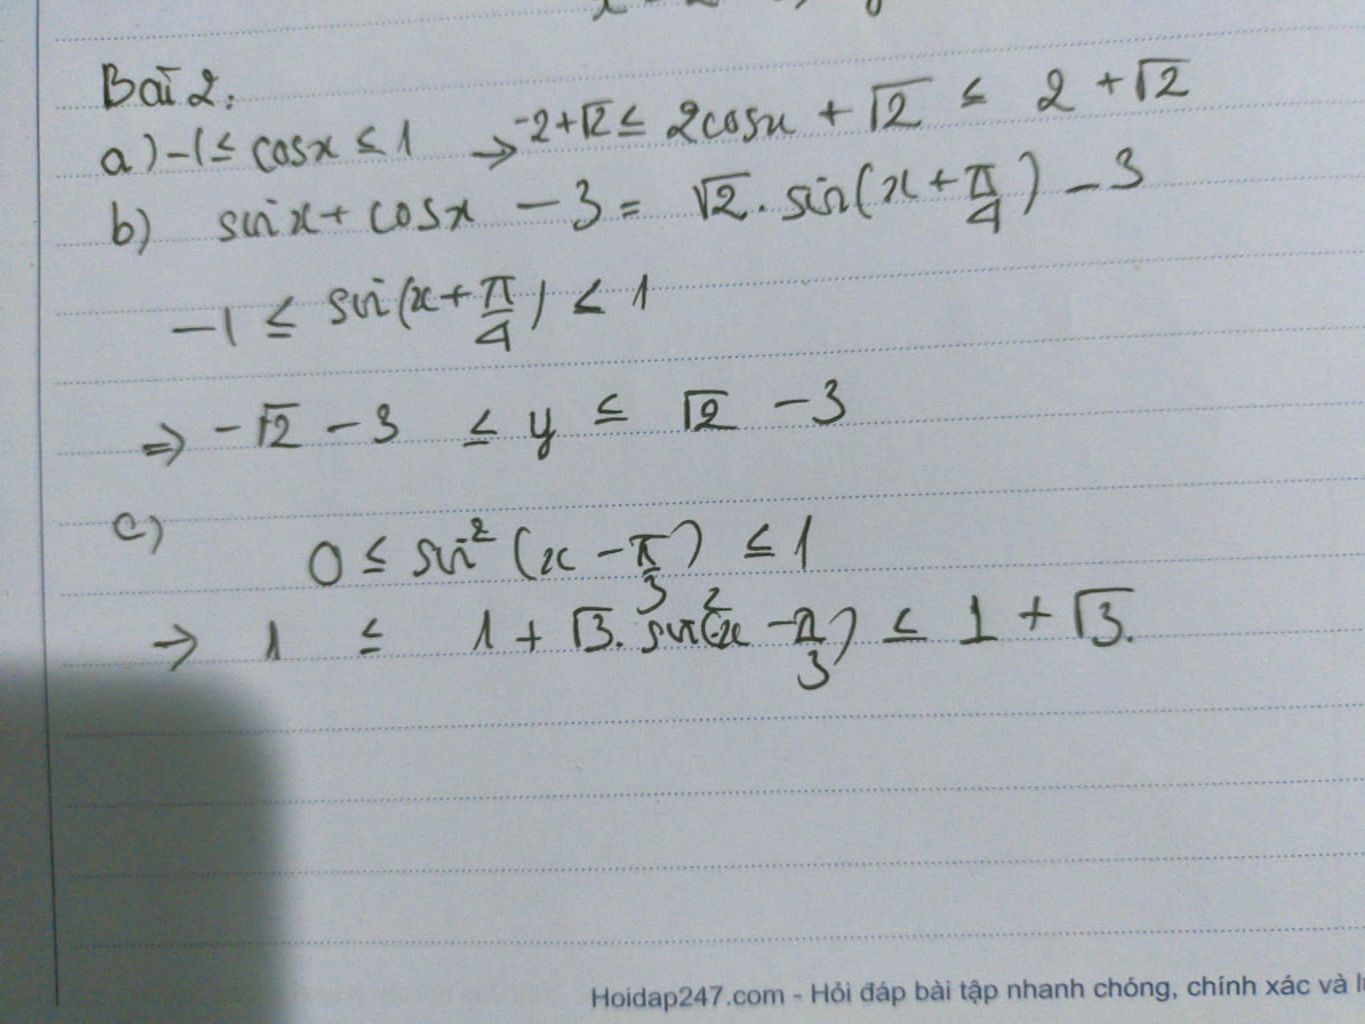 Bài 2:
a) -1 ≤ cosx ≤ 1 → -2+√2 ≤ 2cosx + √2 ≤ 2 + √2
b) sinx + cosx - 3 = √2. sin(x + π/4) - 3
-1 ≤ sin(x + π/4) < 1
⇒ -√2 - 3 ≤ y ≤ √2 - 3
c) 0 ≤ sin²(x - π/3) ≤ 1
→ 1 ≤ 1 + √3. sin²(x - π/3) ≤ 1 + √3.
Hoidap247.com - Hỏi đáp bài tập nhanh chóng, chính xác và